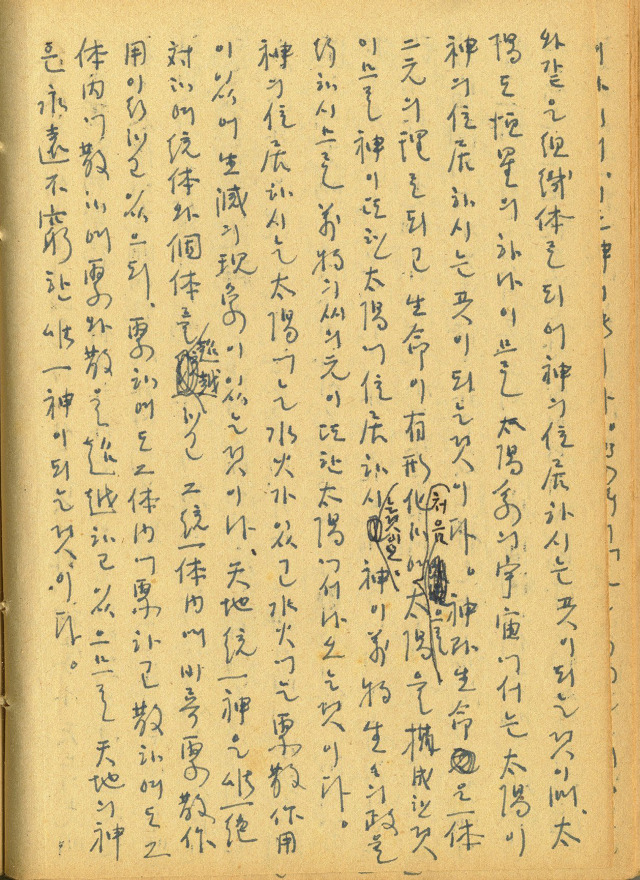 와같은 組織体로 되여 神의 住居하시는 곳이 되는것이며, 太
陽도 恒星의 하나이므로 太陽系의 宇宙에서는 太陽이
神의 住居하시는 곳이 되는것이다。 神과 生命은 一体
二元의 理로 되고 生命이 有形化하여 처음으로 太陽을 構成한것
이므로 神이 또한 太陽에 住居하시는것이오 神이 萬物生成의 政을
하시므로 萬物의 씨의 元이 또한 太陽에서 나오는것이다。
神의 住居하시는 太陽에는 水火가 있고 水火에는 聚散作用
이 있어 生滅의 現象이 있는것이다、 天地統一神은 唯一絶
対하며 統体와 個体를 超越하고 그 統一体内에 聚散作
用이 있으되、 聚하여도 그 体内에 聚하고 散하여도 그
体内에 散하며 聚와 散을 超越하고 있으므로 天地의 神
은 永遠不窮한 唯一神이 되는것이다。